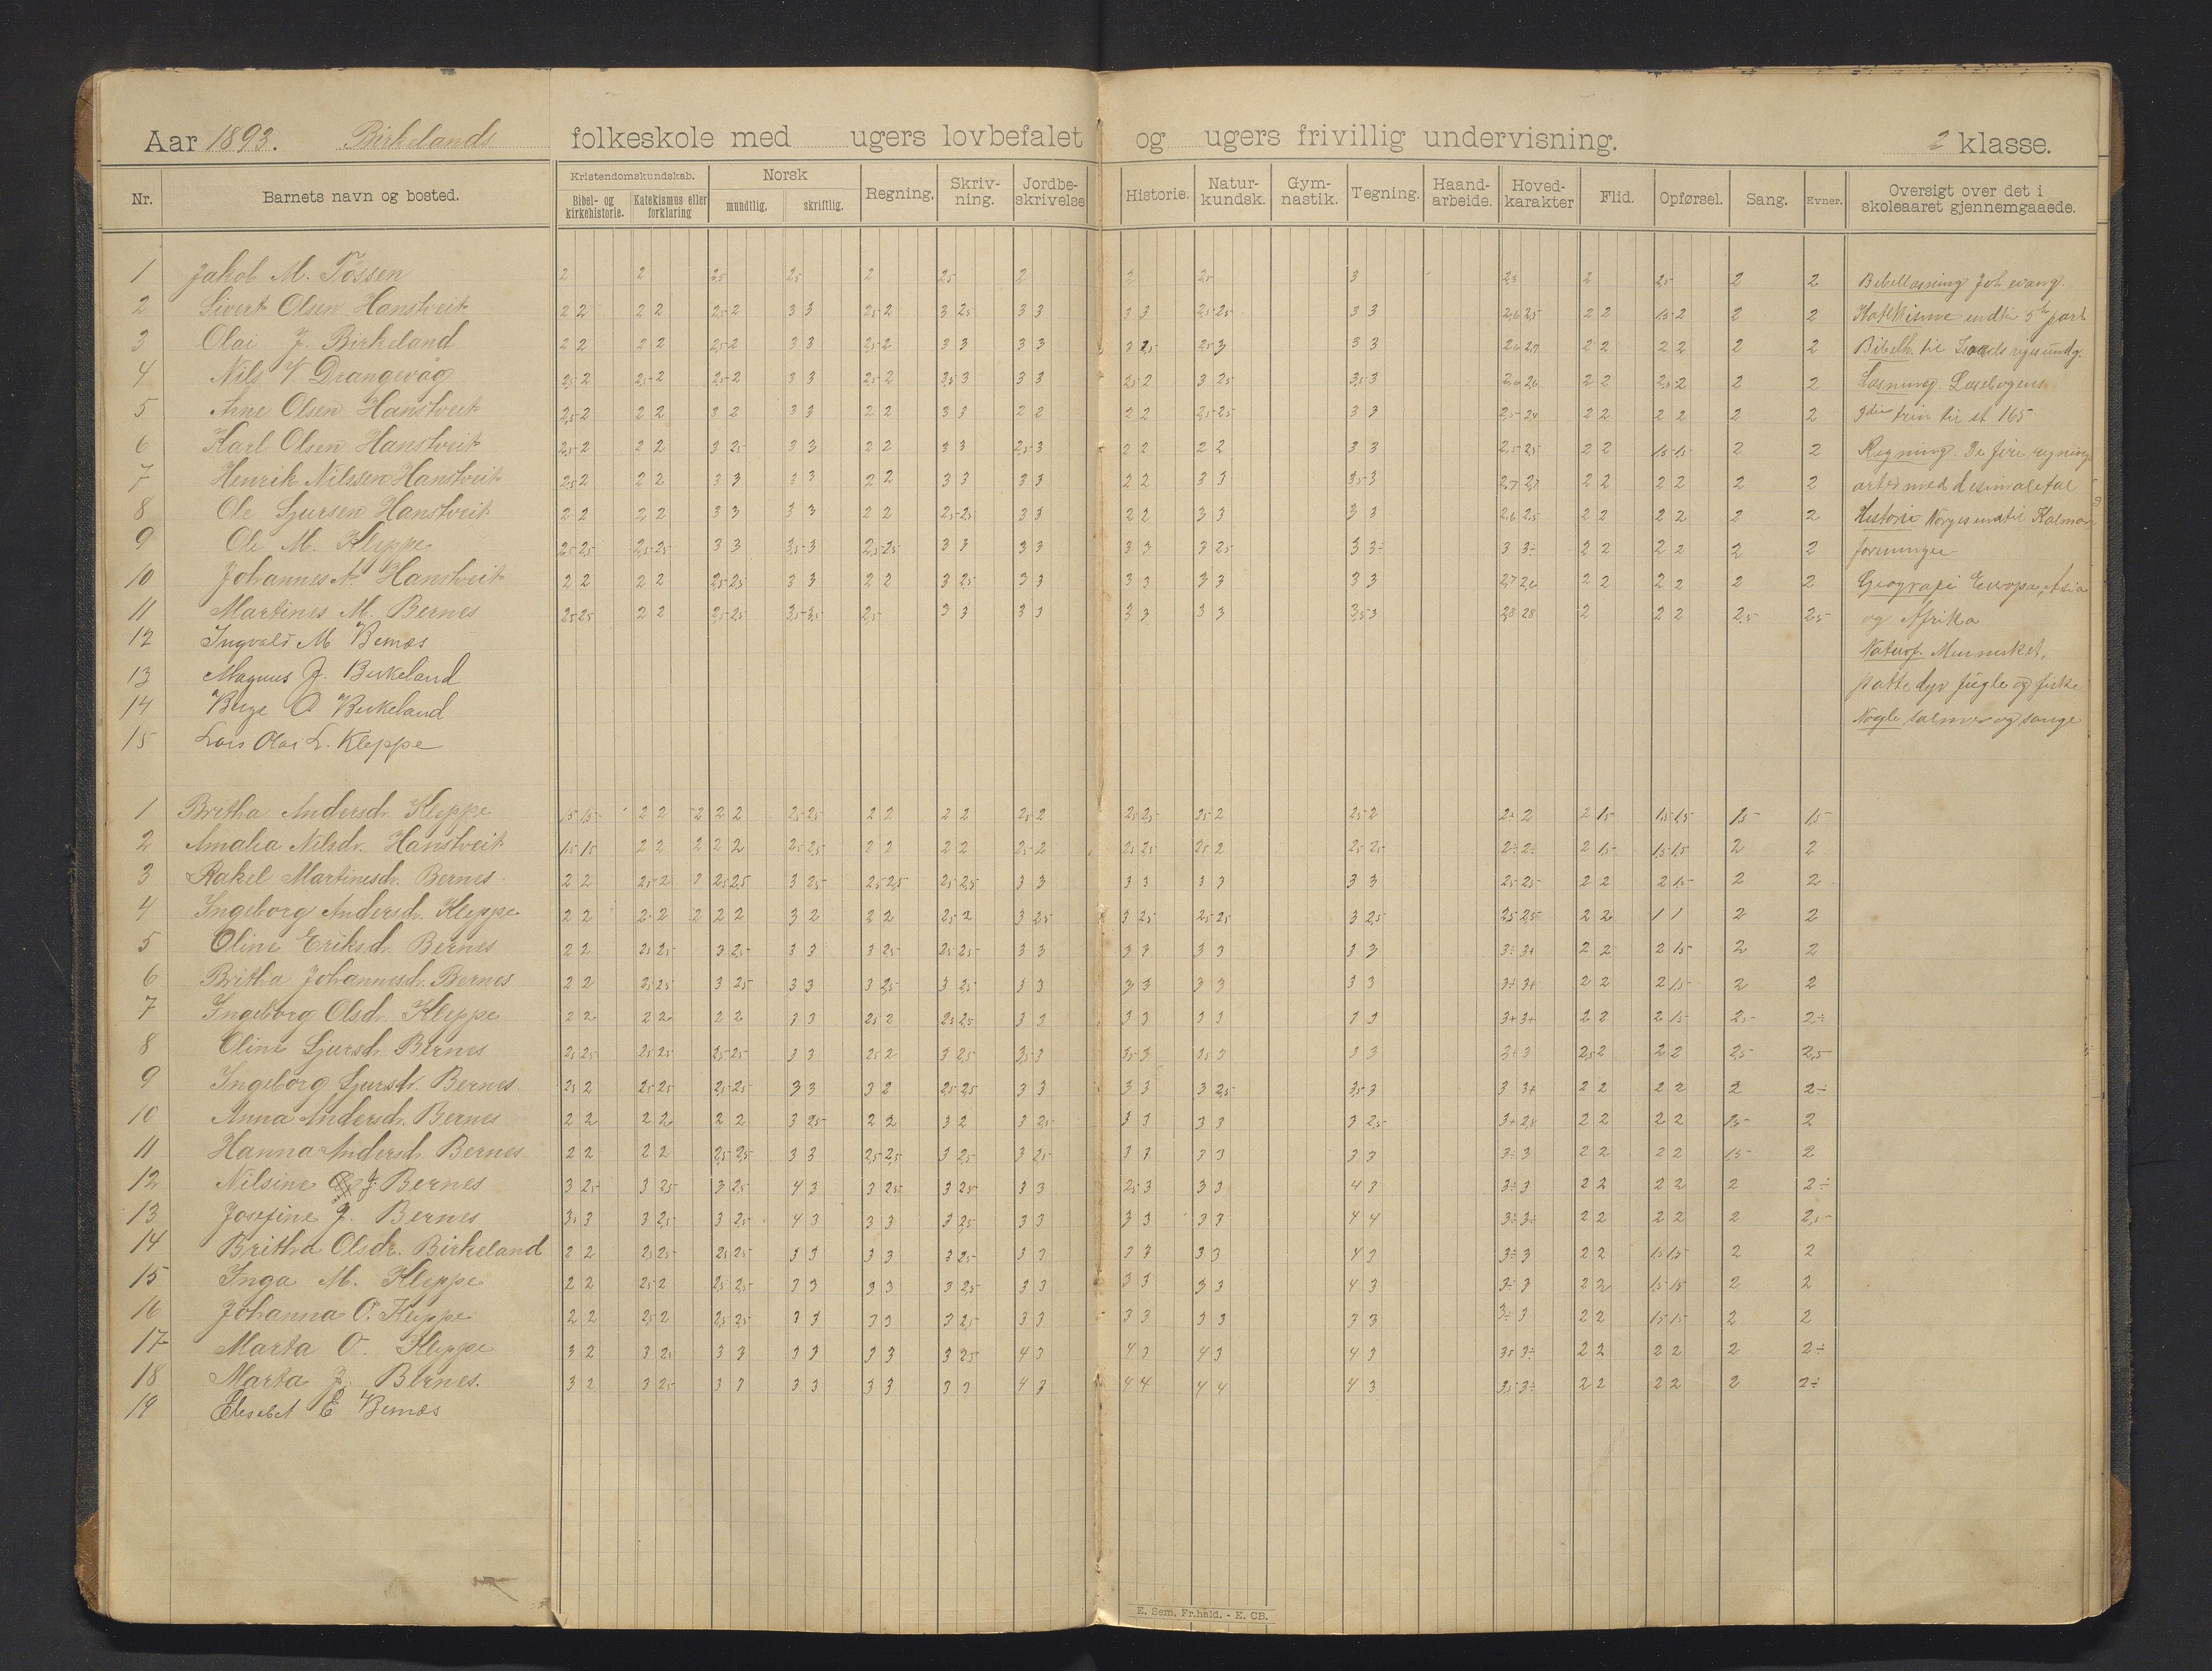 Aar 1893. Birkelands folkeskole med ugers lovbefalet og ugers frivillig undervisning. 2 klasse.
Nr. Barnets navn og bosted. Kristendomskundskab. Bibel- og kirkehistorie. Katekismus eller forklaring Norsk mundtlig. skriftlig. Regning. Skriv-ning. Jordbe-skrivelse Historie. Natur-kundsk. Gym-nastik. Tegning. Haand-arbeide. Hoved-karakter Flid. Opførsel. Sang. Evner. Oversigt over det i skoleaaret gjennemgaaede.
1 Jakob M. Tössen 2 2 2,5 2,5 2 2,5 2 2 2,5 3 2 2,5 2 2 Bibellæsning Joh evang.
2 Sivert Olsen Hanstveit 2 2 2 2 2,5 2 3 3 2,5 2 3 2,5 3 3 3 3 2,5 2,5 3 3 2,6 2,5 2 2 1,5 2 2 2 Katekisme indtil 5te part
3 Olai J. Birkeland 2 2 2 2 2,5 2 3 3 2,5 2 3 3 3 3 2,5 3 3 3 2 2 2 2 2 2 Bibelh. til Israels riges undg.
4 Nils N. Drangevåg 2,5 2 2,5 2 2,5 2 3 3 2,5 2 3,5 3 3 3 2,5 2 3 2,5 3,5 3 2,6 2,6 2 2 2,5 2 2 2 Læsning Læsebogens
5 Arne Olsen Hanstveit 2,5 2 2 2 3 2 3 3 2 2 3 3 2 2 2 2 2,5 2,5 3 3 2,5 2,4 2 2 2 2 2 2 3die trin til st 165
6 Karl Olsen Hanstveit 2,5 2 2 2 3 2,5 3 3 2 2 3 3 2,5 3 2 2 2 2 3 3 2,5 2,5 2 2 1,5 1,5 2 2 Regning. De fire regnings
7 Henrik Nilssen Hanstveit 2,5 2 2 2 3 3 3 3 2 2 3 3 3 3 2 2 3 3 3,5 3 2,7 2,7 2 2 2 2 2 2 arter med desimaletal
8 Ole Sjursen Hanstveit 2 2 2 2 3 3 3 3 2 2 2,5 2,5 3 3 2 2 3 3 3 3 2,6 2,5 2 2 2 2 2 2 Historie Norges indtil Kalmar
9 Ole M. Kleppe 2,5 2,5 2,5 2,5 3 3 3,5 3 2,5 2,5 3 3 3 3 3 3 3 2,5 3 3÷ 3 3÷ 2 2 2 2 2 2 foreningen
10 Johannes A. Hanstveit 2 2 2 2 2,5 2,5 3 3 2 2 3 2,5 3 3 3 3 3 3 3 3 2,7 2,6 2 2 2 2 2 2 Geografi Europa, Asia
11 Martines M. Bernes 2,5 2,5 2 2 2,5 2,5 3,5 3,5 2,5 3 3 3 3 3 3 3 3 3,5 3 2,8 2,8 2 2 2 2,5 2,5 og Afrika
12 Ingvald M Bernæs Naturf. Mennesket,
13 Magnus J. Birkeland patte dyr fugle og fiske
14 Birge O Birkeland Nogle salmer og sange
15 Lars Olai L. Kleppe
1 Britha Andersdr. Kleppe 1,5 1,5 2 2 2 2 2 2,5 2,5 2 2 2 2 2,5 2 2,5 2,5 2,5 2 2,5 2 2÷ 2 2 1,5 1,5 1,5 1,5 1,5
2 Amalia Nilsdr. Hanstveit 1,5 1,5 2 2 2 2 2 2,5 2,5 2 2 2 2 2,5 2 2,5 2,5 2,5 2 2,5 2,5 2÷ 2÷ 2 1,5 1,5 1,5 2 2
3 Rakel Martinesdr. Bernes 2 2 2,5 2 3 2,5 2,5 3 2,5 2,5 2,5 2,5 2,5 3 3 3 3 3 3 3 3 2,5 2,5 2 2 2 1,5 2 2
4 Ingeborg Andersdr. Kleppe 2 2 2 2 2 2 2 3 2 2 2 2,5 2 3 2,5 3 2,5 2,5 2,5 3 2,5 2,5 2,5 2 2 1 1 2 2
5 Oline Eriksdr. Bernes 2 2 2,5 2,5 3 2,5 3 3 3 2,5 2,5 2,5 3 3 3 3 3 3 3 3 3÷ 3+ 2 2 2 1,5 2 2
6 Britha Johannesdr. Bernes 2 2 2,5 2,5 3 2,5 3 3 3 2,5 3 2,5 3 3 3 3 3 3 3 3 3+ 3+ 2 2 2 1,5 2 2
7 Ingeborg Olsdr. Kleppe 2 2 2 2 2 2 3 3 2,5 2 2,5 2,5 3 3 3 3 3 3 3 3 3+ 3+ 2 2 2 1,5 2,5 2÷
8 Oline Sjursdr. Bernes 2,5 2,5 2,5 2,5 2,5 2,5 3 3 2,5 2 3 2,5 3,5 3 3,5 3 3,5 3 3 3 3+ 3 2,5 2 2 2 2,5 2,5
9 Ingeborg Sjursdr. Bernes 2,5 2 2,5 2,5 2,5 2,5 3 3 3 2 2,5 2,5 3 3 3 3 3 2,5 3,5 3 3 3+ 2 2 2 2 2 2÷
10 Anna Andersdr. Bernes 2 2 2 2 2 2 3 2,5 2 2 3 2 3 2,5 3 3 3 3 3 2,5 3+ 2,8 2 2 2 2 1,5 2
11 Hanna Andersdr. Bernes 2 2 2 2 2,5 2,5 3 3 2,5 2,5 3 2,5 3 2,5 3 3 3 3 3 3 3÷ 3 2 2 2 2 1,5 2
12 Nilsine J. Bernes 3 2,5 3 2,5 3 2,5 4 3 3 2,5 3 2,5 3 3 2,5 3 3 3 4 3 3÷ 3 2 2 2 2 2 2÷
13 Josefine J. Bernes 3,5 3 3 2,5 3 2,5 4 3 3 3 3 2,5 3 3 3 3 3 3 4 4 3÷ 3÷ 2 2 2 2 2 2,5
14 Britha Olsdr. Birkeland 2 2 2,5 2,5 2,5 2,5 3 3 3 3 3 2,5 3 3 3 3 3 3 4 3 3÷ 3 2 2 1,5 1,5 2 2
15 Inga M. Kleppe 2 2 2,5 2 2,5 2,5 3 3 3 3 3 2,5 3 3 3 3 3 3 4 3 3÷ 3 2 2 1,5 1,5 2 2
16 Johanna O. Kleppe 2 2 2,5 2 2,5 2,5 3 3 3 3 3 2,5 3 3 3 3 3 3 3 3 3÷ 3 2 2 1,5 1,5 2 2
17 Marta O. Kleppe 3 2 3 2,5 3 3 3 3 3 3 3 2,5 4 3 4 3 4 3 4 3 3,5 3÷ 2 2 2 2 2 2÷
18 Marta J. Bernes. 3 2 3 2,5 3 3 3 3 3 3 3 3 4 3 4 4 4 4 4 3 3,5 3÷ 2 2 2 2 2 2÷
19 Elesabet E Bernæs
E. Sem, Fr.hald. - E. CB.